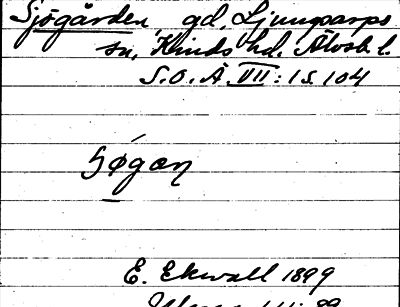 Sjögården, gd, Ljungsarps
sn, Kinds hd. Älvsb. l.
S.O.Ä VII:1 s. 104
E. Ekwall 1899